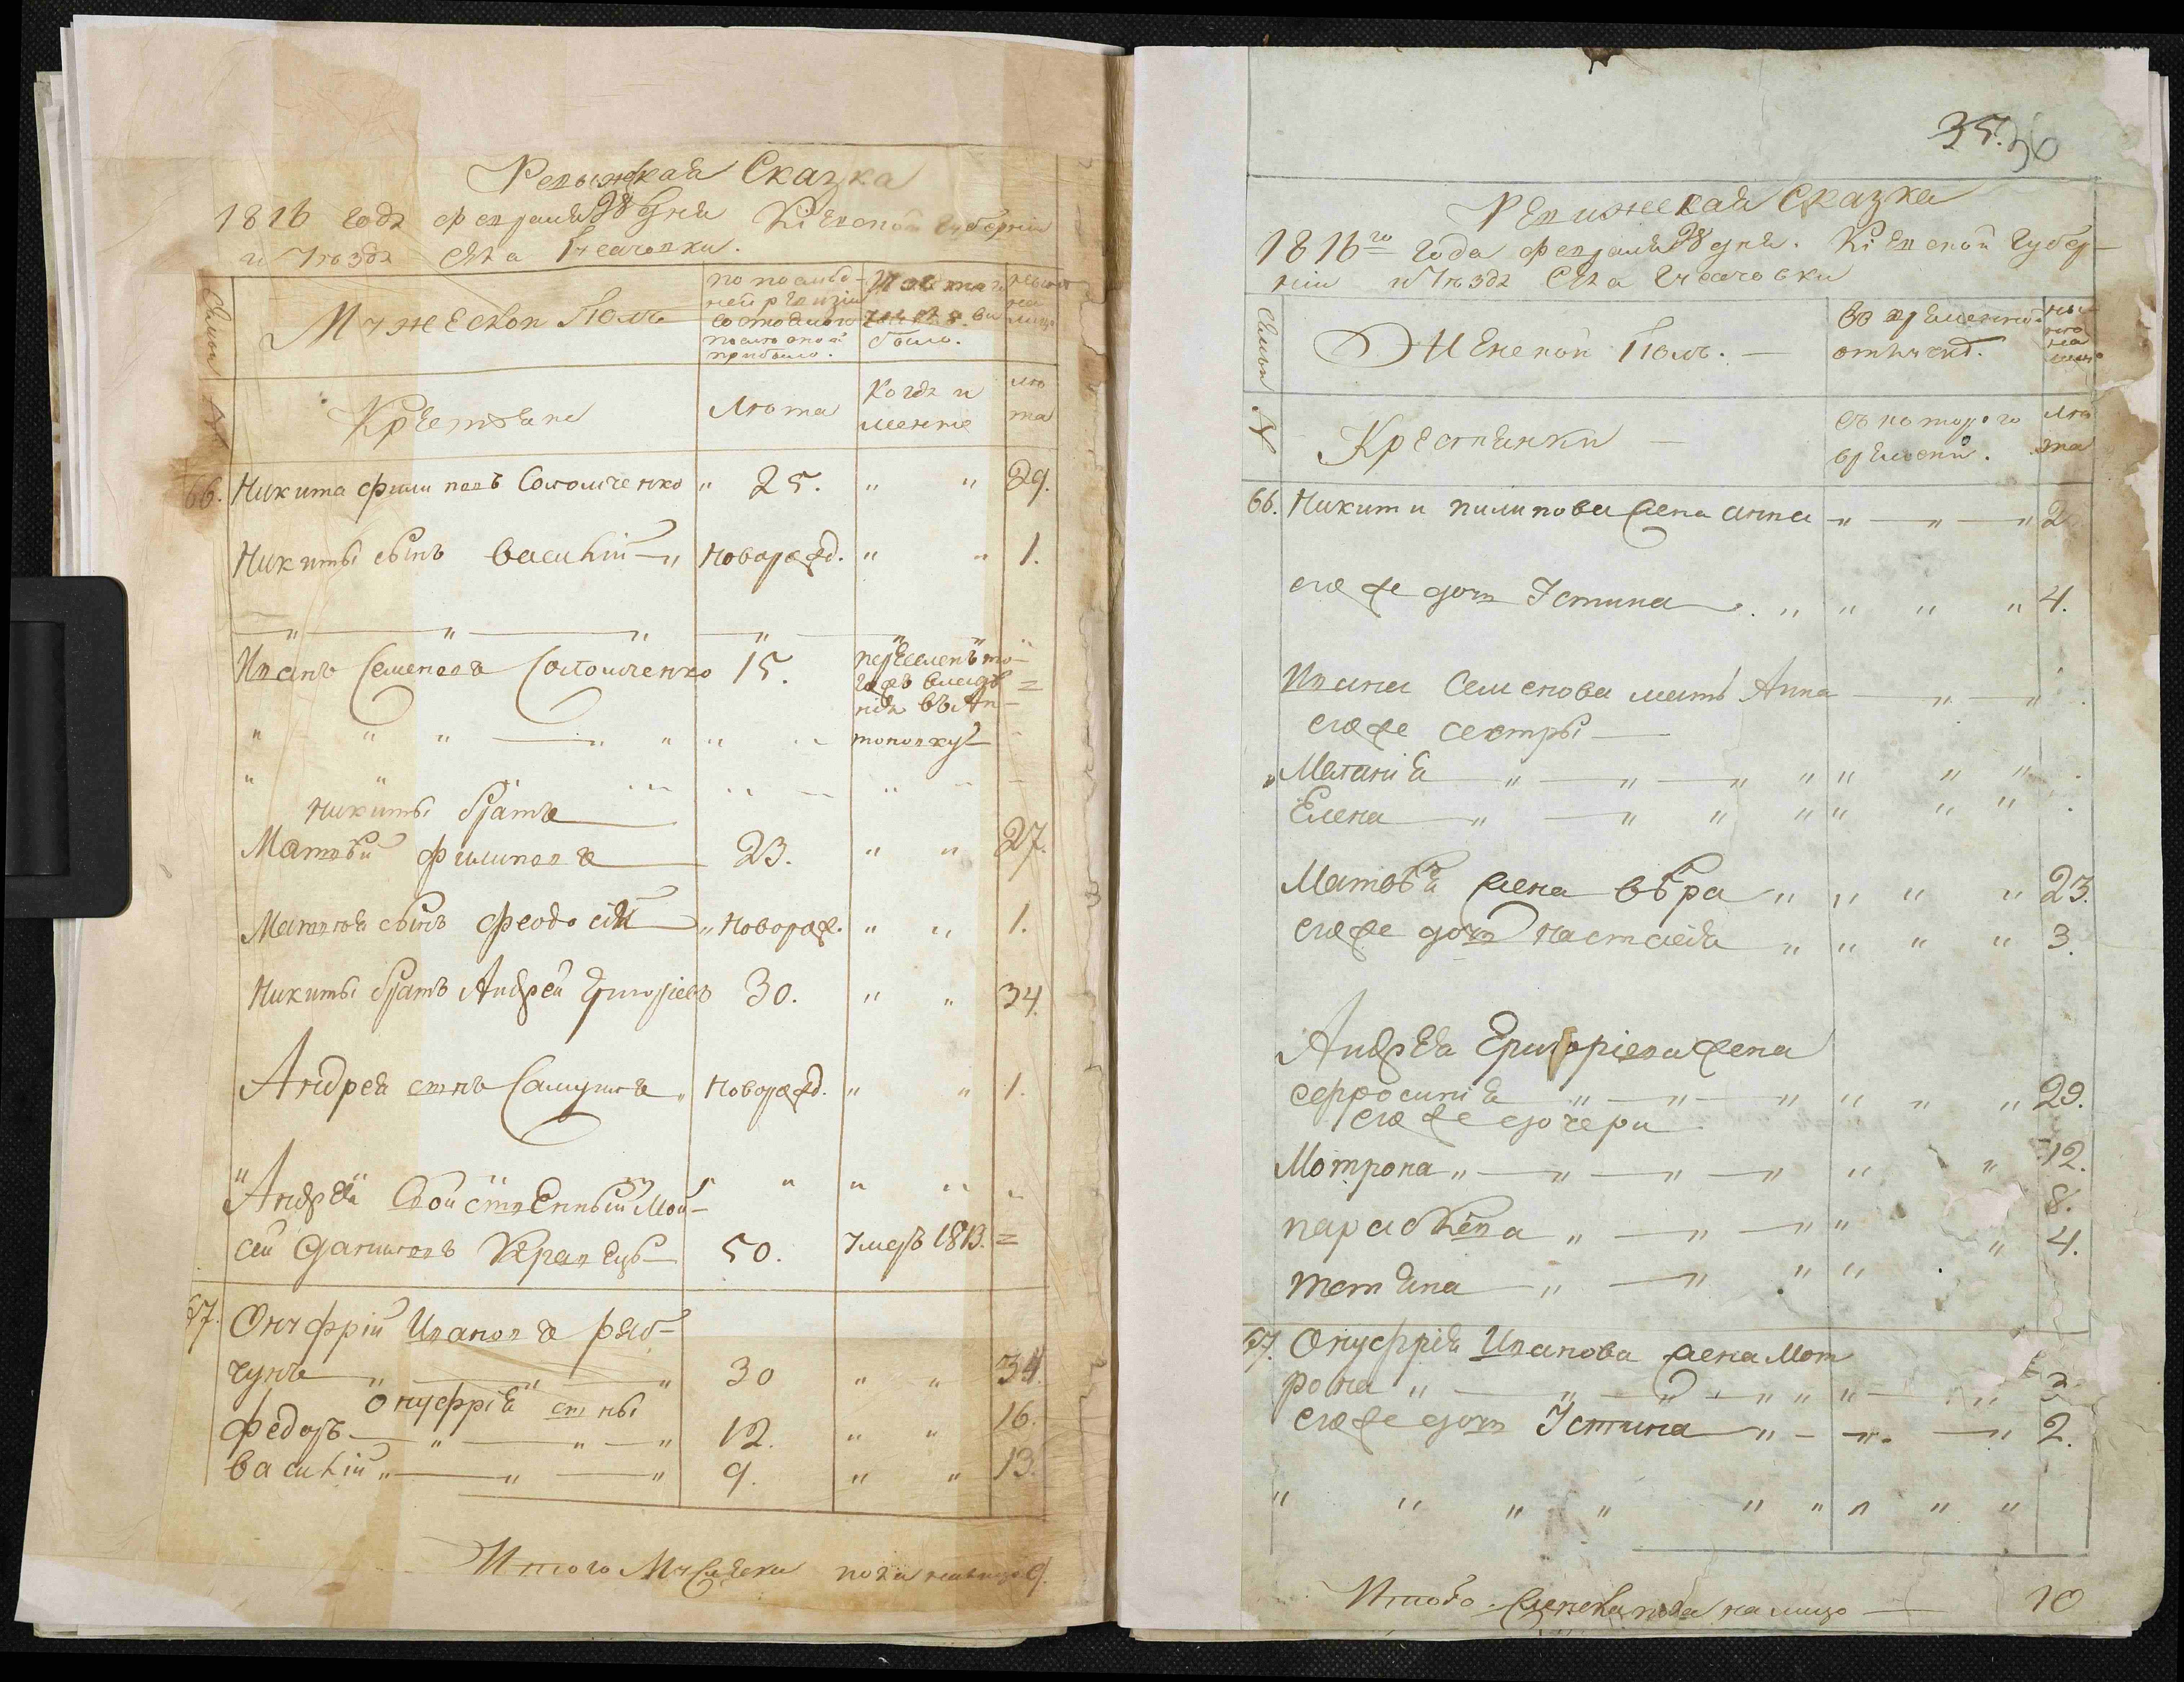 Ревижская Сказка
1816 года февраля 28 дня Кіевской губерніи
и уезда Села
Мужеской Полъ
по послед-
ней ревизіи
состояло и
после оной
прибыло.
Изъ того
было.
ныне
на
лицо
Крестьяне
Лета
Когда и
ле
та
66. Никита филиповъ Соломченко " 25. " " 29.
Никиты сынъ василій " Новорожд. " " 1.
Иванъ Семеновъ Соломченко 15. переселенъ то-
гожъ владе
нія въ Ан-
тоновку
Никиты братъ
Матвей филиповъ 23. " " 27.
Матвея сынъ феодосій " Новорож. " " 1.
Никиты братъ Андрей Григоріевъ 30. " " 34.
Андрея сынъ Самуилъ " Новорожд. " " 1.
Андрея Свойственный Мой-
сей Даниловъ Кравецъ 50. Умеръ 1813. =
67. Онуфрій Ивановъ ряб-
чунъ " " 30 " " 34.
Онуфрія сыны
Федоръ " " " 12. " " 16.
василій " " " 9. " " 13.
Итого Мужеска пола налицо 9.
35. 36
Ревижская Сказка
1816го года февраля 28 дня. Кіевской губер-
ніи и уезда Села
Семьи
№
Женской Полъ.
во временной
отлучке.
ныне
на
лицо
Крестьянки
съ которого
времени.
лета
66. Никити пилипова жена анна " " " 2
егоже дочь Устина " " " " 4.
Ивана Семенова мать Анна " "
егоже сестры
Маланія " " " " " " "
Елена " " " " " " "
Матвея жена вера " " " " 23.
егоже дочь настасія " " " " 3.
Андрея Григоріева жена
ефросинія " " " " " " 29.
егоже дочери
Мотрона " " " " " " 12.
параскева " " " " 8.
татьяна " " " " " 4.
67. Онуфрія Иванова жена Мот
рона " " " " " " " 3
егоже дочь Устина " " " 2.
" " " " " " " " "
Итого женска пола налицо 10